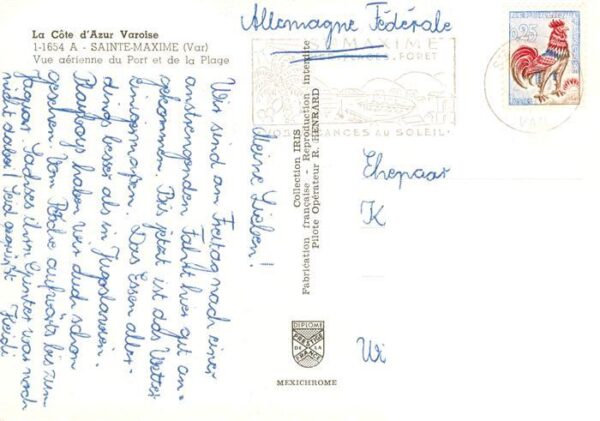 La Côte d'Azur Varoise
1-1654 A - SAINTE-MAXIME (Var)
Vue aérienne du Port et de la Plage
Meine Lieben!
Wir sind am Freitag nach einer
anstrengenden Fahrt hier gut an-
gekommen. Bis jetzt ist das Wetter
einigermaßen. Das Essen aller-
dings besser als in Jugoslavien.
Playboys haben wir auch schon
gesehen. Vom Porsche aufwärts bis zum
Jaguar. Sachses ihr Gunter war noch
nicht dabei! Seid gegrüßt Heidi
Collection IRIS
Fabrication française - Reproduction interdite
Pilote Opérateur R. HENRARD
DIPLOME
PRESTIGE
DE LA
FRANCE
MEXICHROME
Allemagne Fédérale
MAXIME
FORET
VOS VACANCES AU SOLEIL
0,25
VAR
Ehepaar
K
Wi